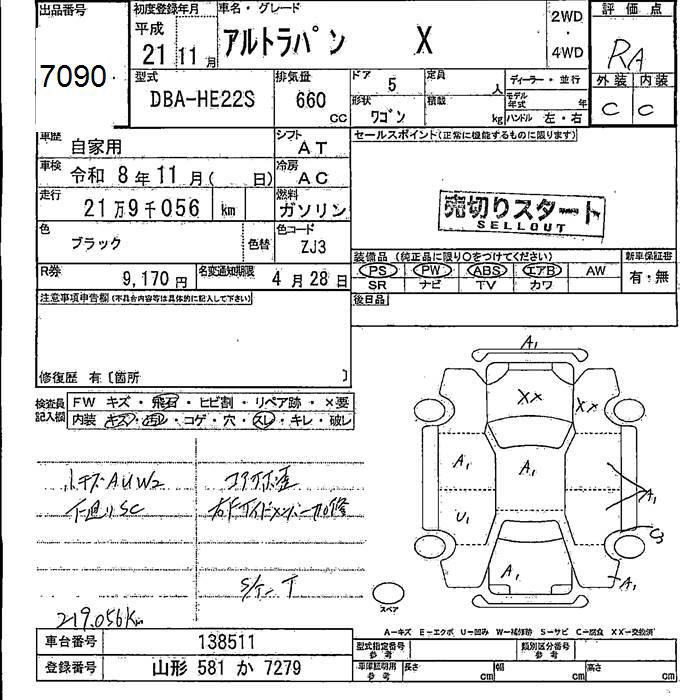 出品番号
7090
初度登録年月
平成
21 11 月
車名・グレード
アルトラパン X
2WD
・
4WD
評価点
RA
型式
DBA-HE22S
排気量
660
CC
ドア
5
定員
人
形状
ワゴン
積載
kg
ディーラー・並行
モデル年式
年
ハンドル 左・右
外装 内装
C C
車歴
自家用
シフト
AT
車検
令和 8年 11月( 日)
冷房
AC
走行
21万9千056 km
燃料
ガソリン
色
ブラック
色替
色コード
ZJ3
R券
9,170円
名変通知期限
4月28日
セールスポイント(正常に機能するものに限ります)
売切りスタート
SELLOUT
装備品 (純正品に限り○をつけてください)
PS PW ABS エアB AW
SR ナビ TV カワ
新車保証書
有・無
後日品
注意事項申告欄(不具合内容等は具体的に記入して下さい)
修復歴 有〔箇所 〕
検査員記入欄
FW キズ・飛石・ヒビ割・リペア跡・×要
内装 キズ・汚レ・コゲ・穴・スレ・キレ・破レ
小キズAUW2
下廻りSC
S/T-T
219.056Km
A1
XX
XX
A1
A1
A1
U1
C3
A1
A1
スペア
A—キズ E—エクボ U—凹み W—補修跡 S—サビ C—腐食 XX—交換済
車台番号
138511
登録番号
山形 581 か 7279
型式指定番号
参考
類別区分番号
参考
車庫証明用
参考
長さ
cm
幅
cm
高さ
cm